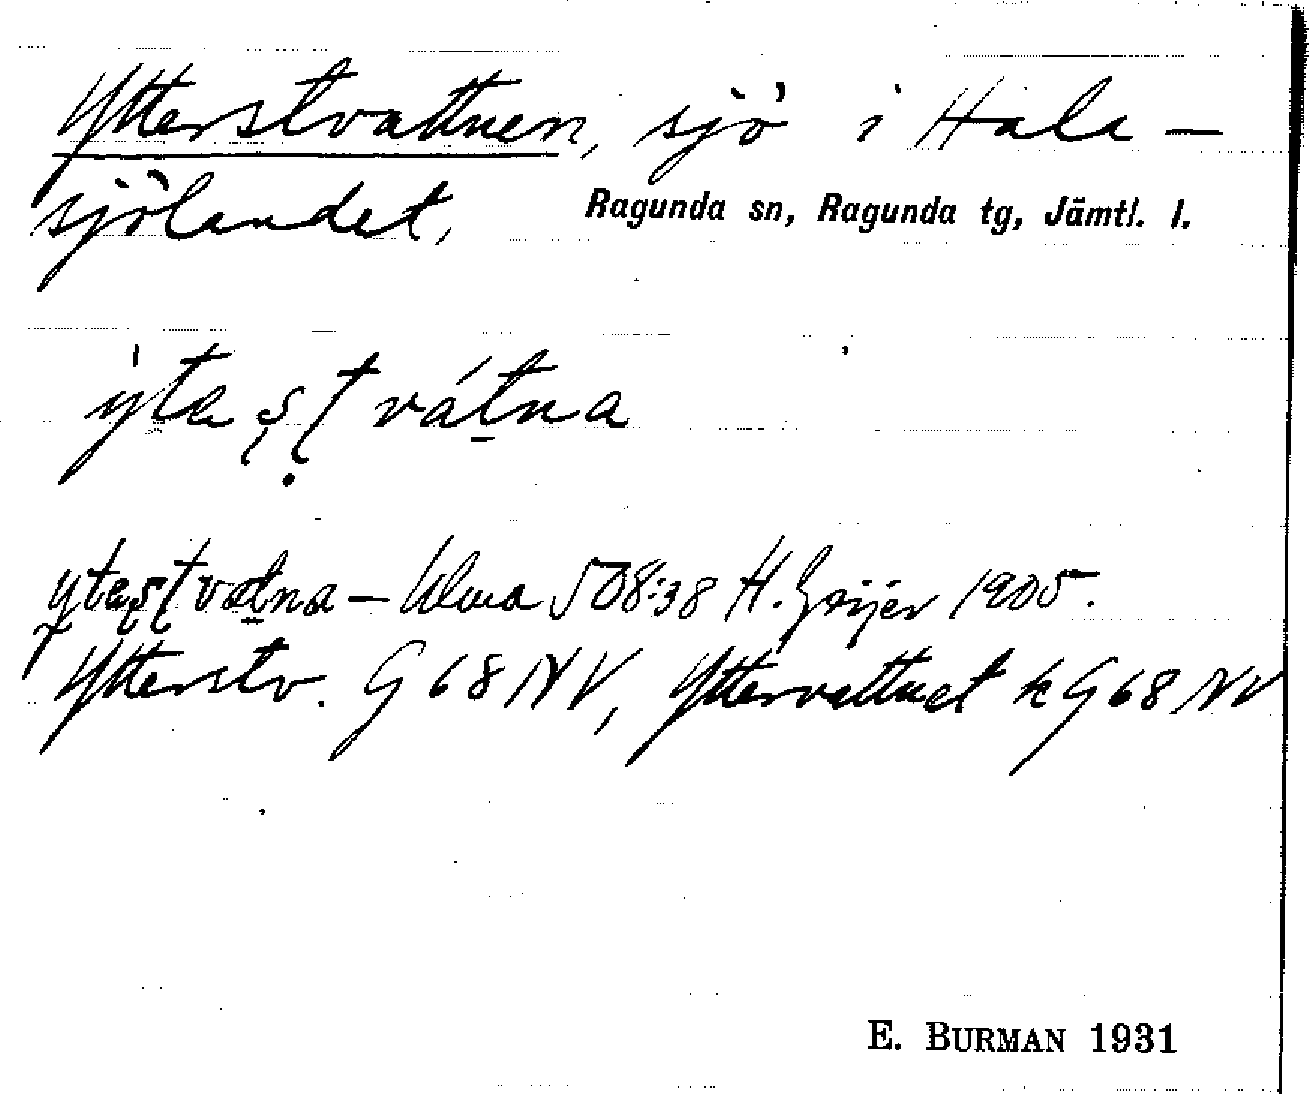 Ytterstvattnen, sjö i Hala-
sjölandet, Ragunda sn, Ragunda tg, Jämtl. l.
ýtaṣṭvát̲na
ytaṣṭvatna – Ulma 508:38 H. Geijer 1905.
Ytterstv. G 68 NV, Yttervattnet k G 68 NV
E. BURMAN 1931